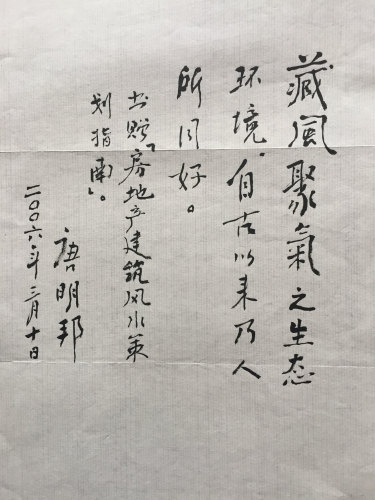 藏风聚氣之生态
环境，自古以来乃人
所同好。
书赠「房地产建筑风水策
划指南」。
唐明邦
二〇〇六年三月十日